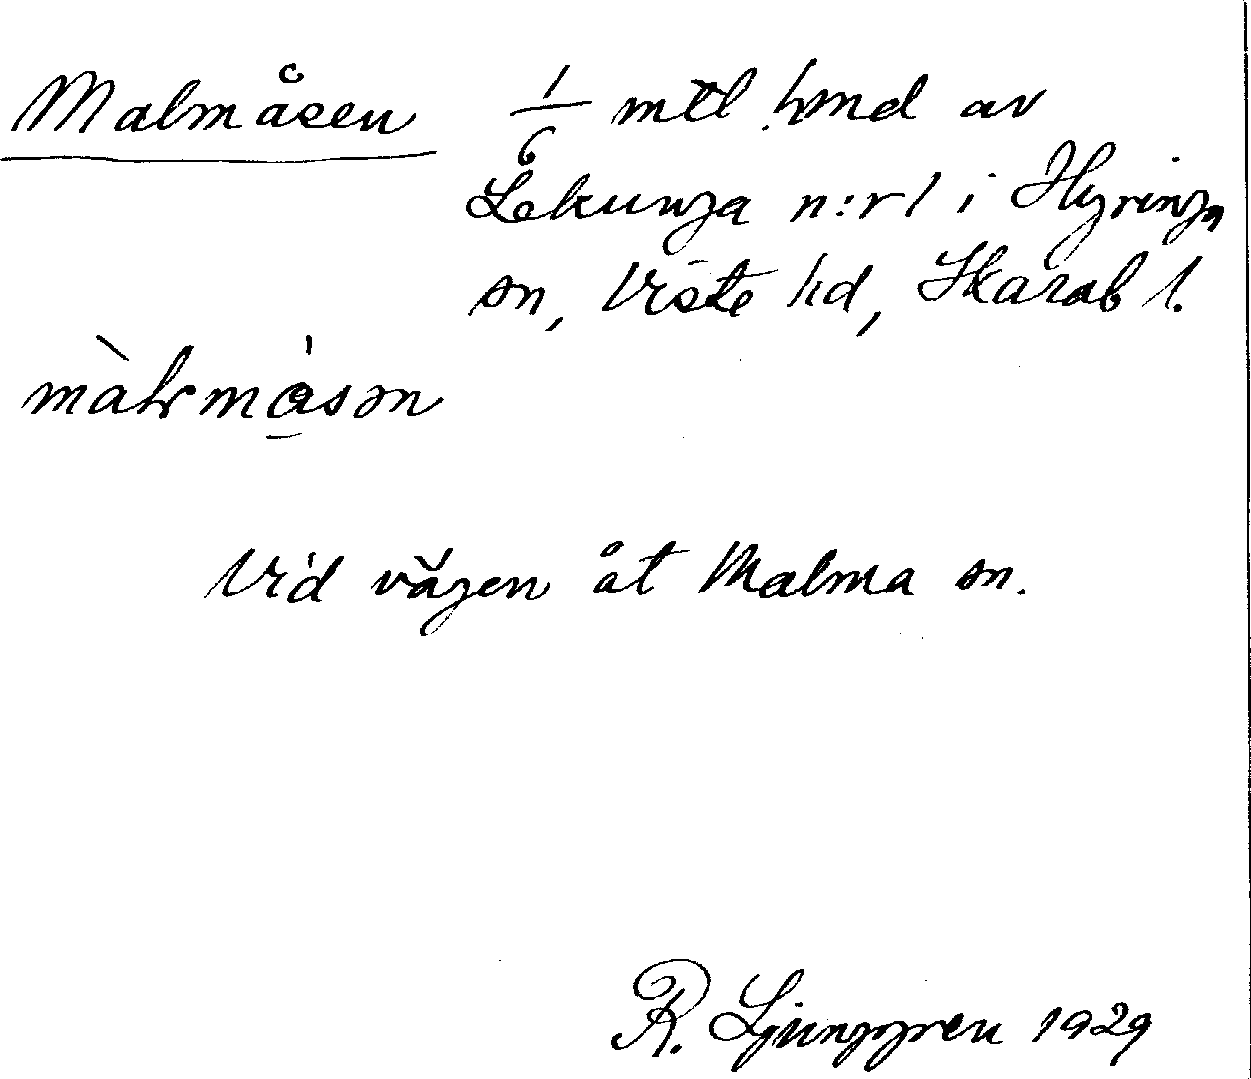 Malmåsen 1/6 mtl hmd av
Lekunga n:r 1 i Hyringa
sn, Viste hd, Skarab l.
màlmåsən
Vid vägen åt Malma sn.
R. Ljunggren 1929